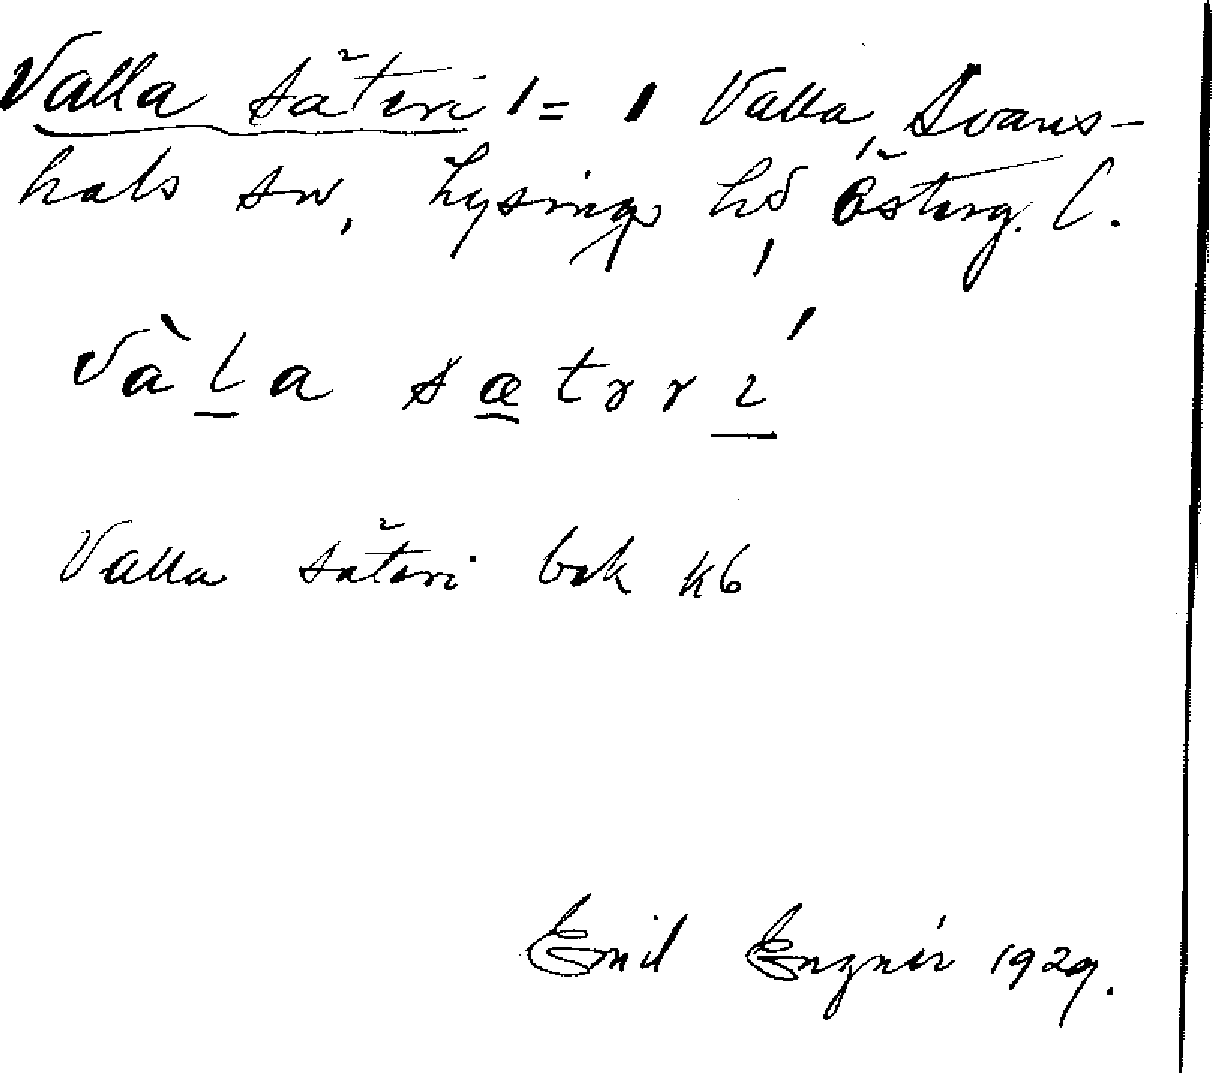 Valla säteri = 1 Valla, Svans-
hals sn, Lysings hd, Österg. l.
vàla sætrrí
Valla säteri bok kb
Emil Engnér 1929.